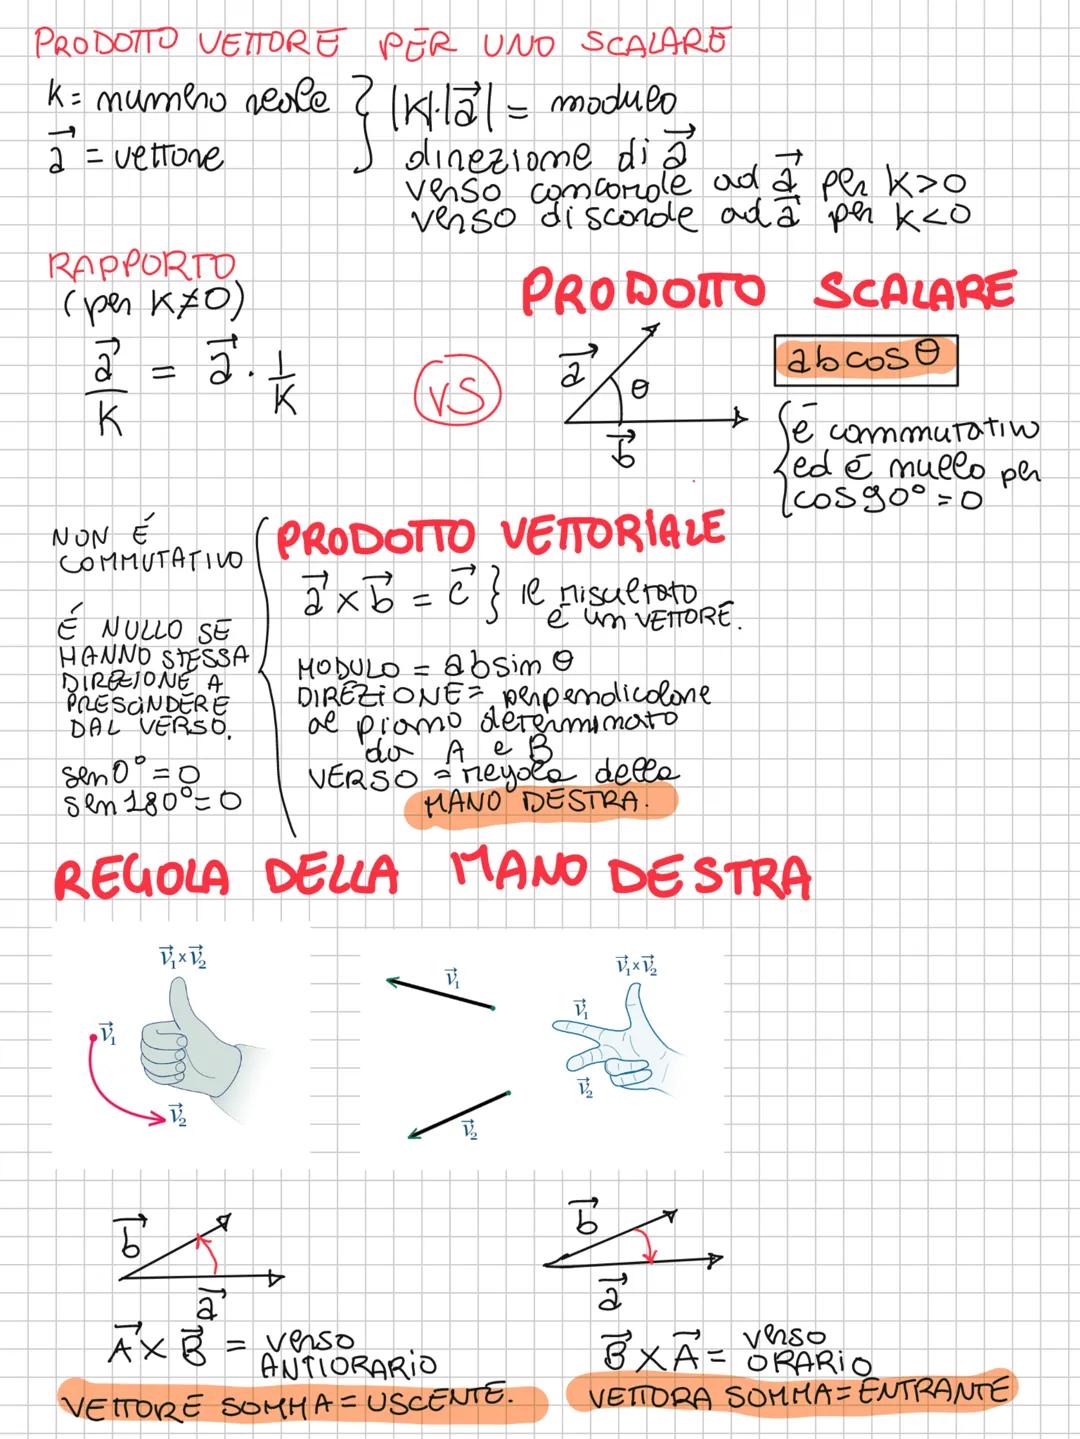 PRODOTTO VETTORE PER UNO SCALARE
K= numero reale } |K|·|a⃗| = modulo
a⃗ = vettore
direzione di a⃗
verso concorde ad a⃗ per K>0
verso discorde ad a⃗ per K<0
RAPPORTO
(per K≠0)
a⃗/K = a⃗ · 1/K
VS
PRODOTTO SCALARE
a⃗
θ
b⃗
abcosθ
{é commutativo
ed é nullo per
cos90°=0
NON É
COMMUTATIVO
É NULLO SE
HANNO STESSA
DIREZIONE A
PRESCINDERE
DAL VERSO.
sen0°=0
sen180°=0
PRODOTTO VETTORIALE
a⃗ × b⃗ = c⃗ } il risultato
é un VETTORE.
MODULO = absinθ
DIREZIONE= perpendicolare
al piano determinato
da A e B
VERSO = regola della
MANO DESTRA.
REGOLA DELLA MANO DESTRA
V⃗₁×V⃗₂
V⃗₁
V⃗₂
V⃗₁
V⃗₂
V⃗₁×V⃗₂
V⃗₁
V⃗₂
b⃗
a⃗
A⃗×B⃗ = verso
ANTIORARIO
VETTORE SOMMA=USCENTE.
b⃗
a⃗
B⃗×A⃗= verso
ORARIO
VETTORA SOMMA=ENTRANTE